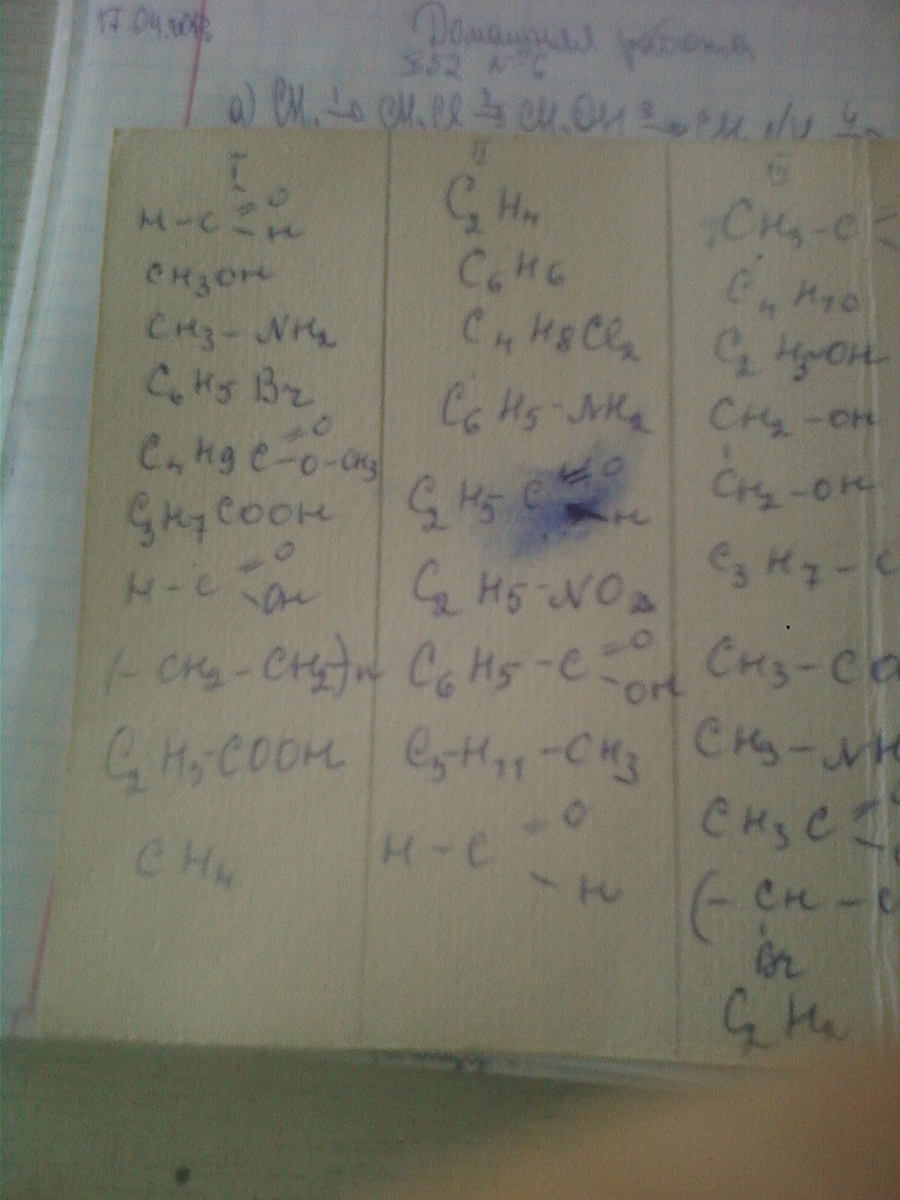 17.04.
Домашняя работа
§52 №6
а) CH₄ ¹→ CH₃Cl ²→ CH₃OH ³→ CH₃NH
I
H-C=O
-H
CH₃OH
CH₃-NH₂
C₆H₅Br
C₄H₉C=O
-O-CH₃
C₃H₇COOH
H-C=O
-OH
(-CH₂-CH₂)n
C₂H₅-COOH
CH₄
II
C₂H₄
C₆H₆
C₄H₈Cl₂
C₆H₅-NH₂
C₂H₅C=O
-H
C₂H₅-NO₂
C₆H₅-C=O
-OH
C₅-H₁₁-CH₃
H-C=O
-H
III
CH₃-C
C₄H₁₀
C₂H₅-OH
CH₂-OH
CH₂-OH
C₃H₇-C
CH₃-CO
CH₃-NH
CH₃C
(-CH-C
Br
C₂H₂